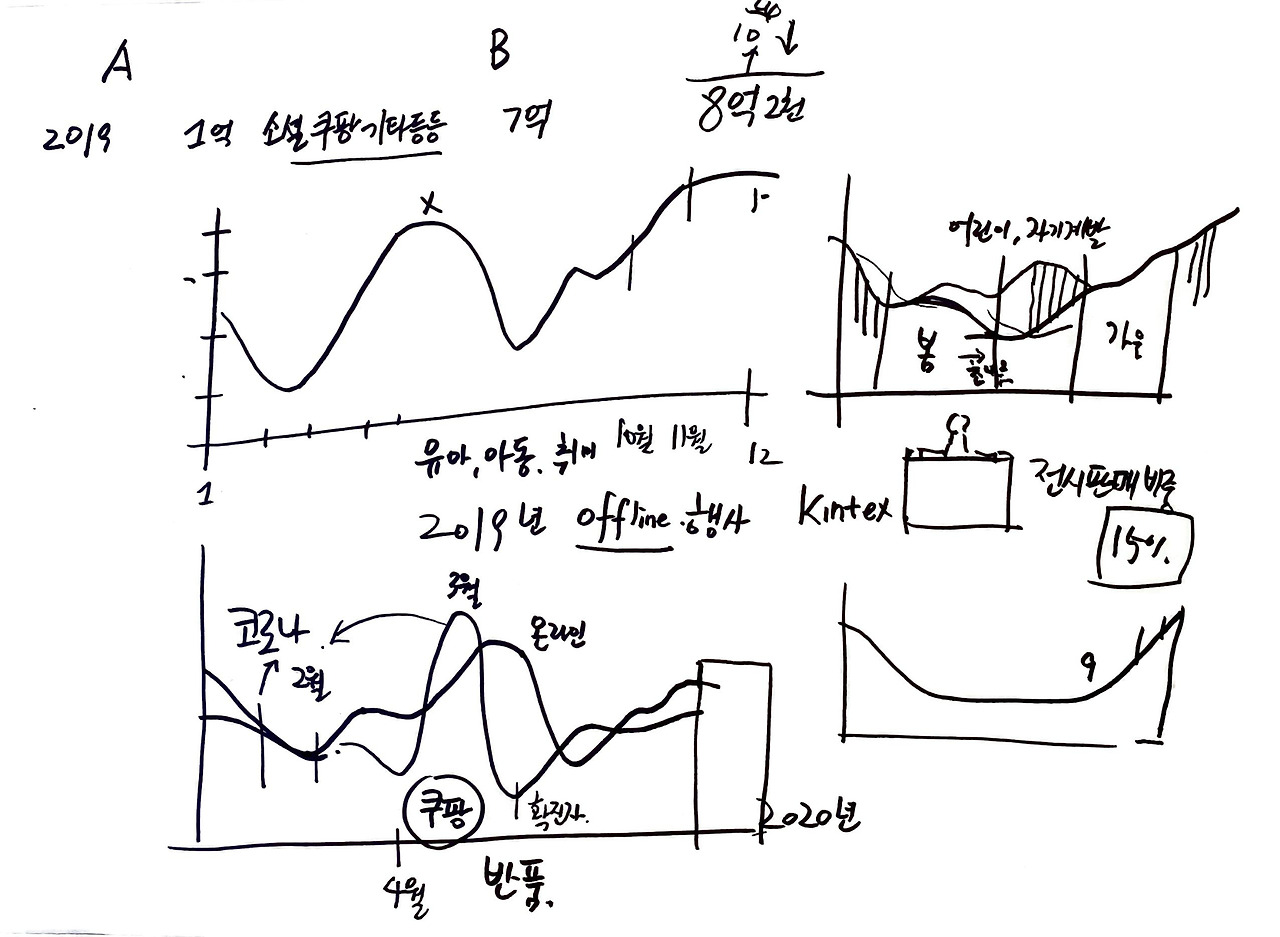 A
B
10
8억2천
2019 1억 소셜 쿠팡 기타등등 7억
x
어린이, 자기계발
봄
가을
유아, 아동. 취미 10월 11월
1
12
2019년 offline 행사
Kintex
전시판매 비중
15%
3월
코로나
2월
온라인
9
쿠팡
확진자.
2020년
4월
반품.